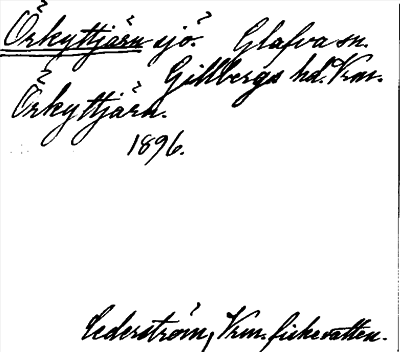 Örkyttjärn sjö. Glafva sn.
Gillbergs hd. Vrm.
Örkyttjärn.
1896.
Cederström, Vrm. fiskevatten.